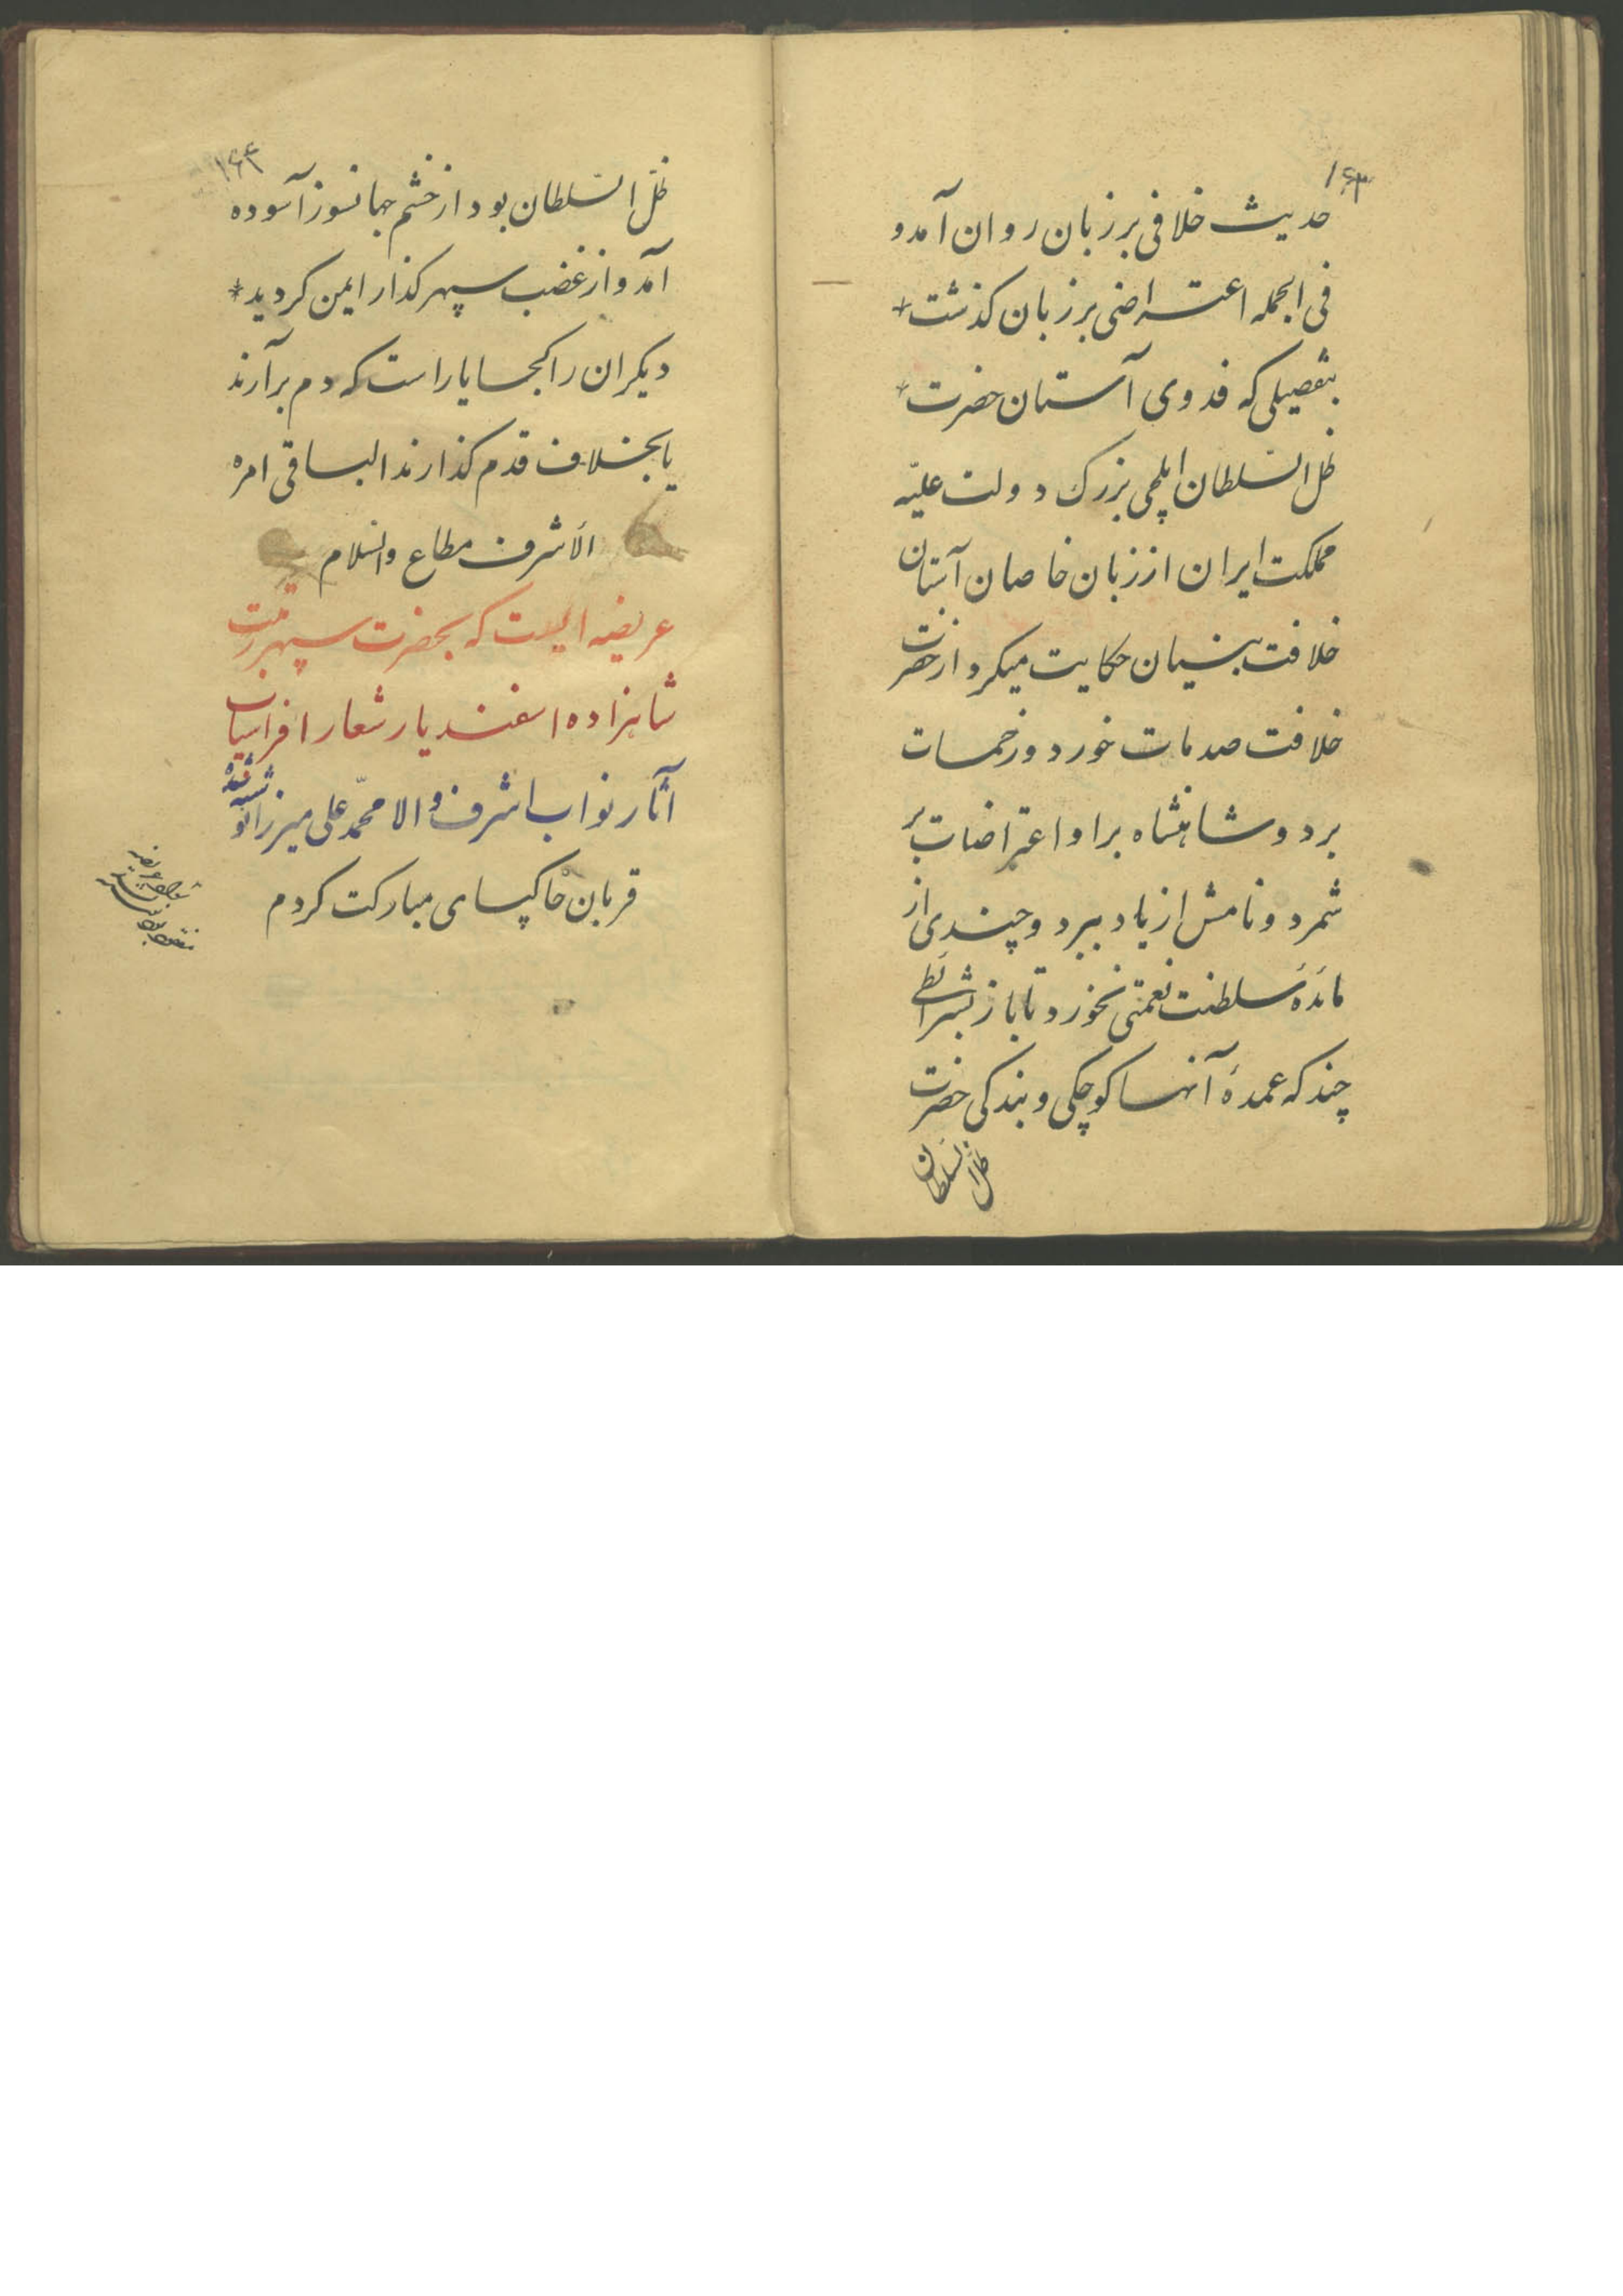 ۱۶۳
حدیث خلافی بر زبان روان آمد و
فی الجمله اعتراضی بر زبان کذشت
بتفصیلی که فدوی آستان حضرت
ظل السّلطان ایلچی بزرک دولت علیّه
مملکت ایران از زبان خاصان آستان
خلافت بنسیان حکایت میکرد از حضرت
خلافت صدمات خورد و زحمات
برد و شاهنشاه بر او اعتراضات بر
شمرد و نامش از یاد ببرد و چندی از
مائدهٔ سلطنت نعمتی نخورد تا باز بشرائطی
چند که عمدهٔ آنها کوچکی و بندکی حضرت
ظل السلطان
۱۶۴
ظلّ السّلطان بود از خشم جهانسوز آسوده
آمد و از غضب سپهر کذار ایمن کردید *
دیکران را کجا یاراست که دم برآرند
یا بخلاف قدم کذارند الباقی امره
الأشرف مطاع والسّلام
عریضه ایست که بحضرت سپهر رتبت
شاهزاده اسفندیار شعار افراسیاب
آثار نواب اشرف والا محمّد علی میرزا نوشته شده
قربان خاکپای مبارکت کردم